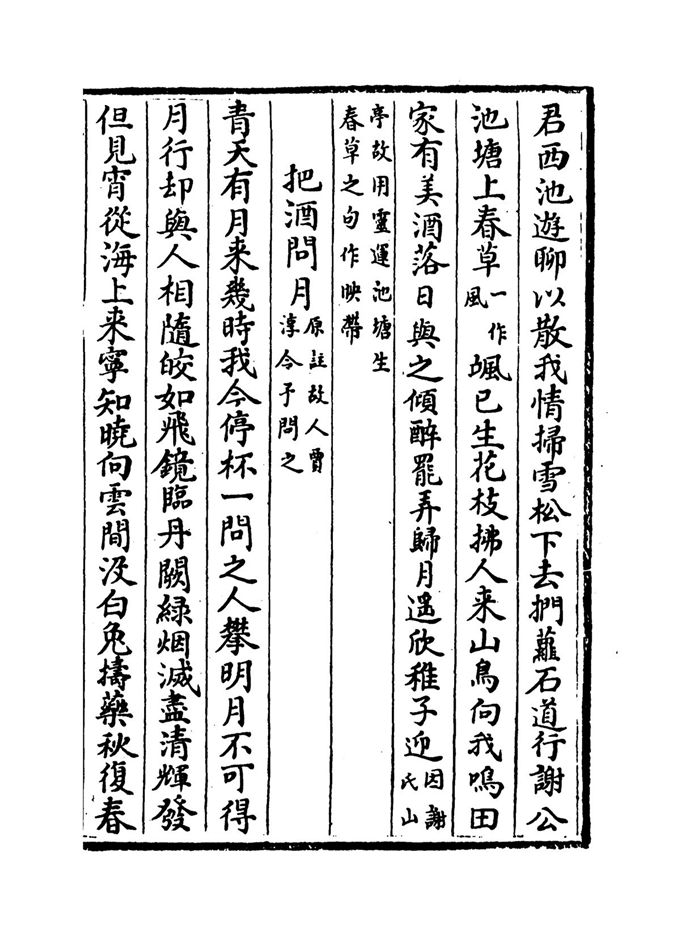 君西池遊聊以散我情掃雪松下去捫蘿石道行謝公
池塘上春草一作風颯已生花枝拂人来山鳥向我鳴田
家有美酒落日與之傾醉罷弄歸月遥欣稚子迎因謝氏山
亭故用靈運池塘生春草之句作映帶
把酒問月原註故人賈淳令予問之
青天有月来幾時我今停杯一問之人攀明月不可得
月行却與人相隨皎如飛鏡臨丹闕緑烟滅盡清輝發
但見宵從海上来寧知曉向雲間没白兔擣藥秋復春